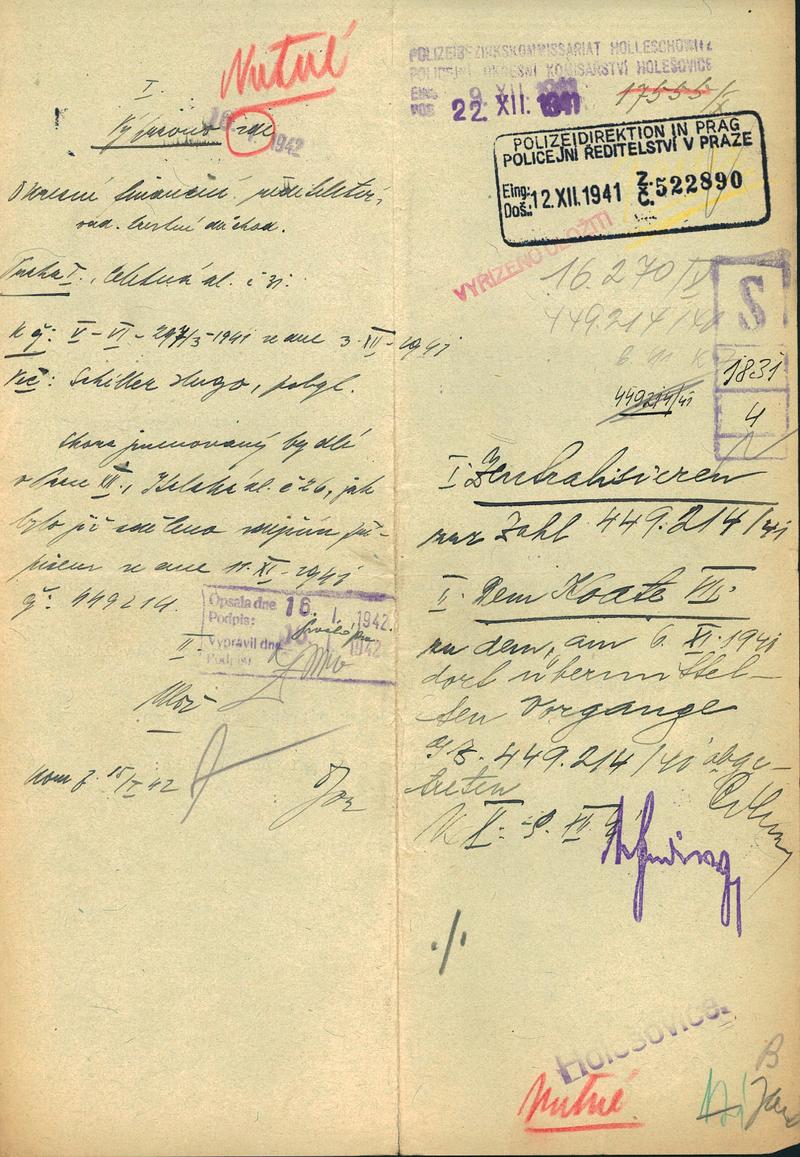 Nutné
I.
16. I. 1942
Okresní finanční ředitelství,
odd. trestní důchod.
Praha I., Celetná ul. č 31.
K čj: V-VI-297/3-1941 ze dne 3. XII-1941
Věc: Schiller Hugo, pobyt.
Shora jmenovaný bydlí
v Praze VII., ul. č 26, jak
bylo již sděleno zdejším pří-
pisem ze dne 11. XI-1941
čj. 449214.
Opsala dne 16. I. 1942
Podpis:
Vypravil dne 1942
Podpis:
II.
15/I 42
POLIZEIBEZIRKSKOMMISSARIAT HOLLESCHOWITZ
POLICEJNÍ OKRESNÍ KOMISAŘSTVÍ HOLEŠOVICE
EING. 9. XII.
DOŠ. 22. XII. 1941
17555/X
POLIZEIDIREKTION IN PRAG
POLICEJNÍ ŘEDITELSTVÍ V PRAZE
Eing.: Doš.: 12. XII. 1941 Z. Č. 522890
VYŘÍZENO ULOŽITI
16.270/IV
449.214/40
S
1831
4
449214/41
I. Zentralisieren
zur Zahl 449.214/41
II. Dem Koate VII.
zu dem, am 6. XI. 1941
dort übermittel-
ten Vorgange
449.214/40 abge-
treten
./.
Holešovice.
Nutné
B